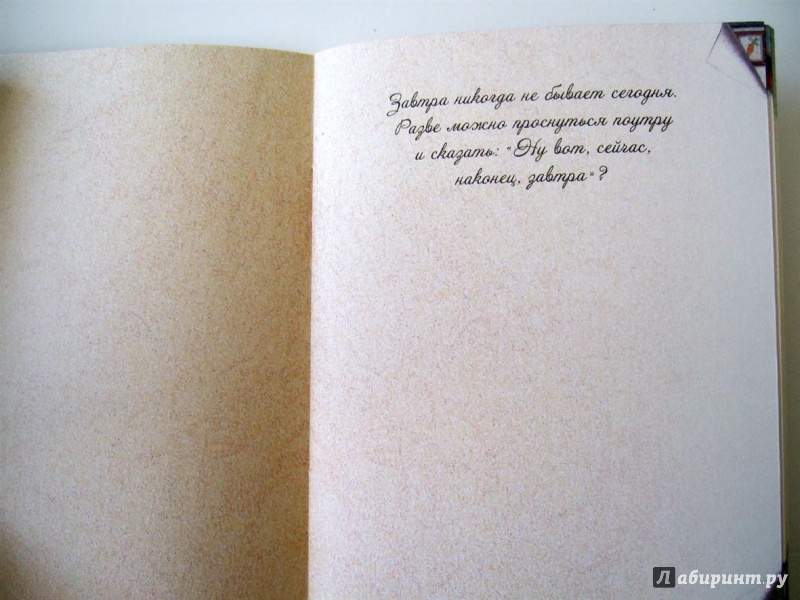 Завтра никогда не бывает сегодня.
Разве можно проснуться поутру
и сказать: "Ну вот, сейчас,
наконец, завтра"?
Лабиринт.ру